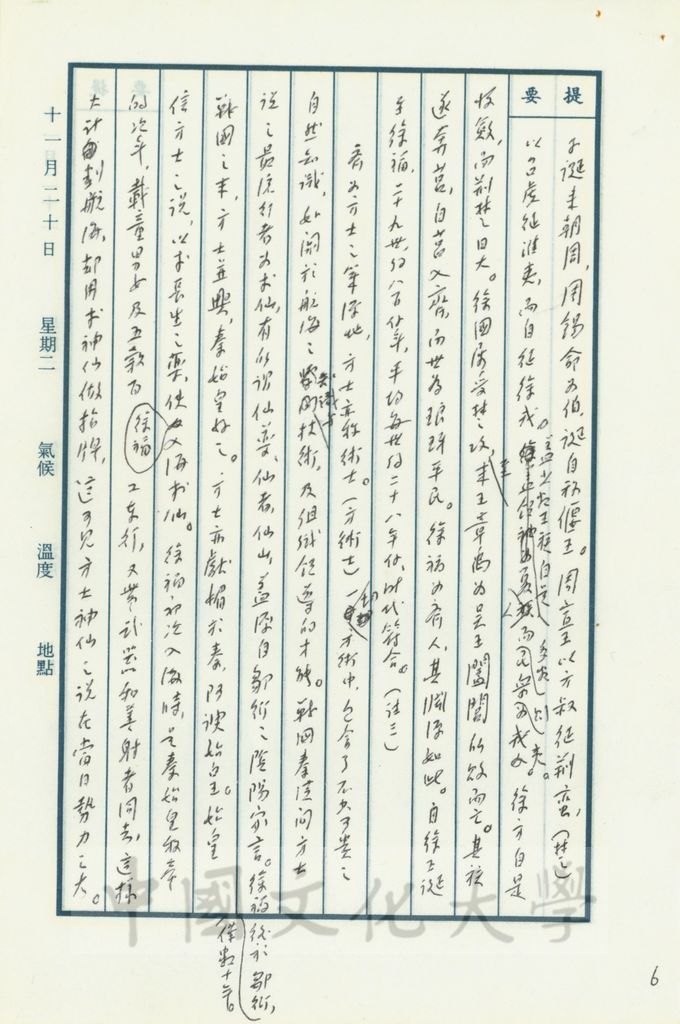 提要
子誕來朝周，周錫命為伯，誕自稱偃王。周宣王以方叔征荊蠻，（楚）
以召虎征淮夷，而自征徐戎。徐方自是
收斂，而荊楚日大。徐國屢受楚之攻，章禹為吳王闔閭所敗而亡。其族
遂奔莒，自莒入齊，而世為琅琊平民。徐福為齊人，其淵源如此。自徐王誕
至徐福，二十九世，約八百餘年，平均每世約二十八年餘，時代符合。（註三）
齊為方士之策源地，方士亦稱術士（方術士）方術中，包含了不少可貴之
自然知識，如關於航海之技術，及組織領導的才能。戰國秦漢間方士
說之最流行者為求仙，有所謂仙藥、仙者、仙山，蓋源自鄒衍之陰陽家言。徐福後於鄒衍，
僅數十年。
戰國之末，方士並興，秦始皇好之。方士亦獻媚求秦，阿諛始皇。始皇
信方士之說，以求長生之藥，使入海求仙。徐福初次入海時，是秦始皇
的次年，載童男女及五穀百工東行，又帶武器和善射者同去，這樣
徐福
大計劃航海，卻用求神仙做招牌，這可見方士神仙之說在當日勢力之大。
十一月二十日 星期二 氣候 溫度 地點
6
中國文化大學